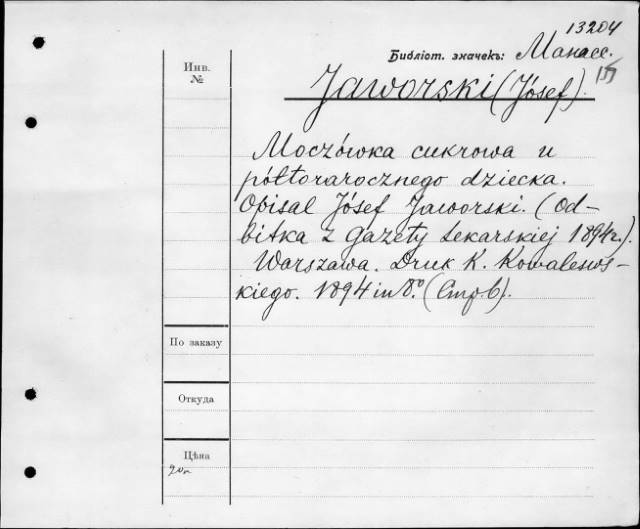 13204
Библіот. значекъ: Манасс.
Инв.
№
Jaworski (Jósef).
Moczówka cukrowa u
półtorarocznego dziecka.
Opisal Jósef Jaworski. (Od-
bitka z gazety Lekarskiej 1894 r.).
Warszawa. Druk K. Kowalews-
kiego. 1894 in 8.° (Стрб).
По заказу
Откуда
Цѣна